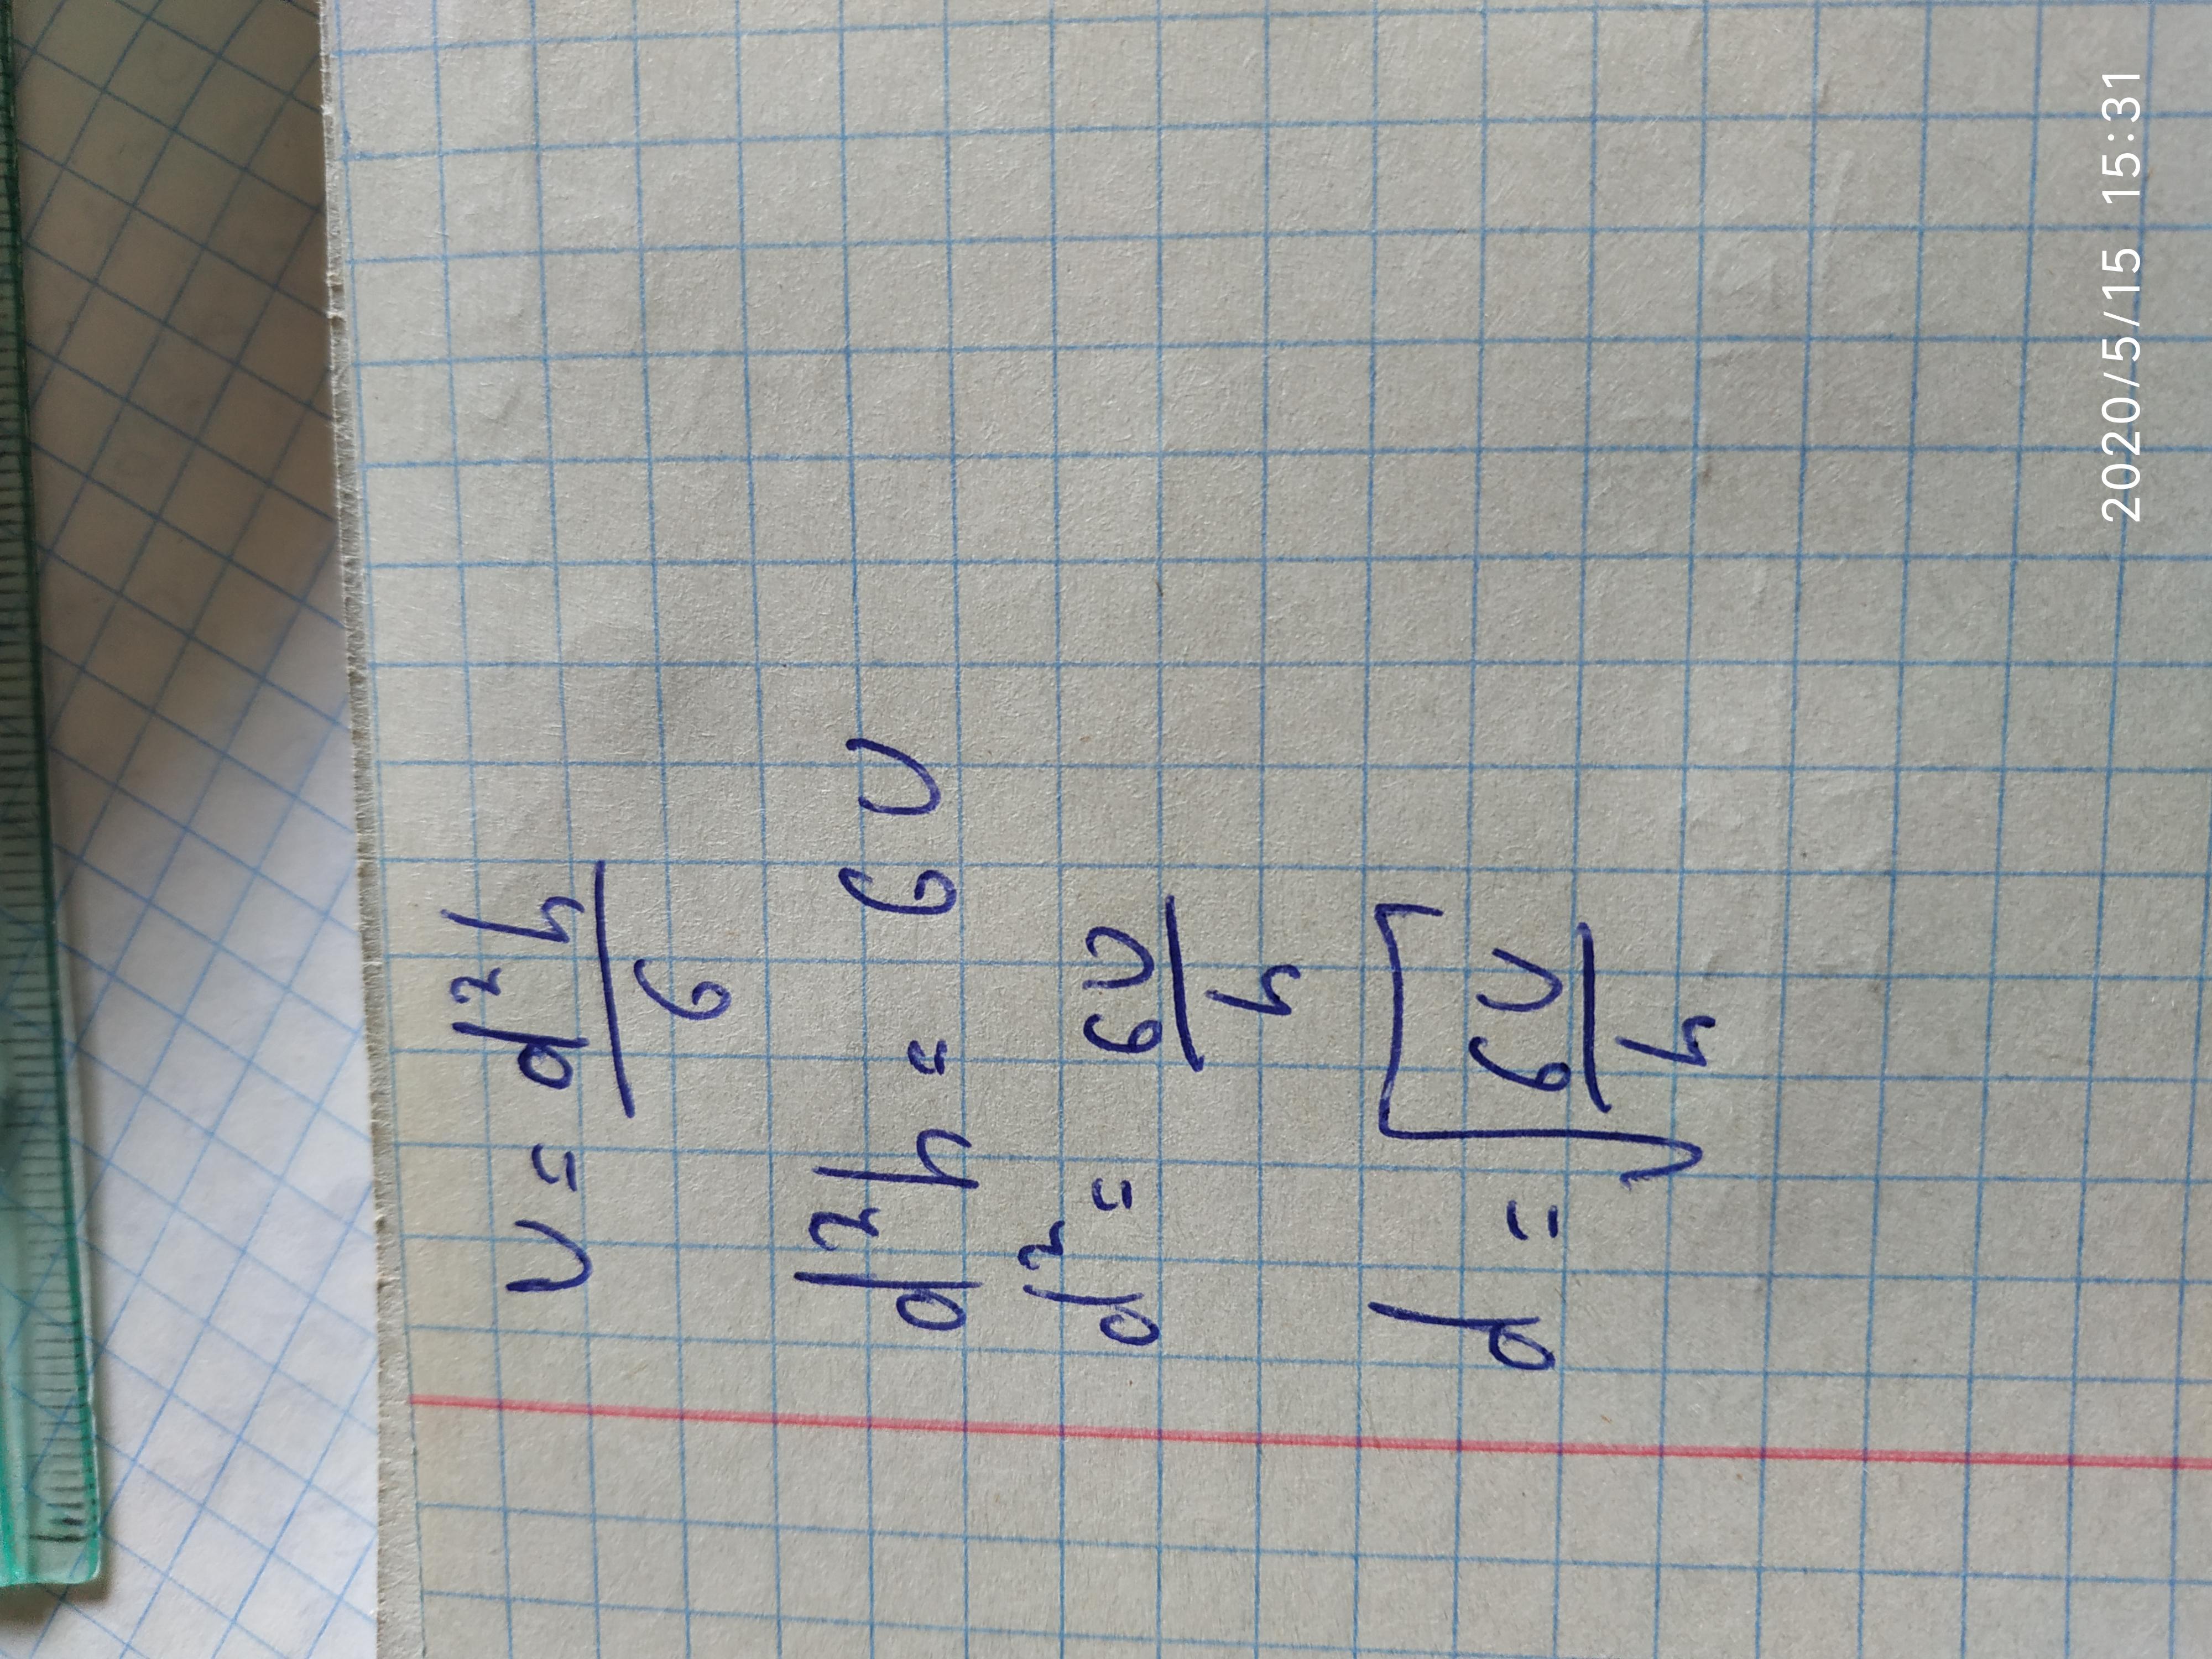 V = d²h/6
d²h = 6V
d² = 6V/h
d = √(6V/h)
2020/5/15 15:31